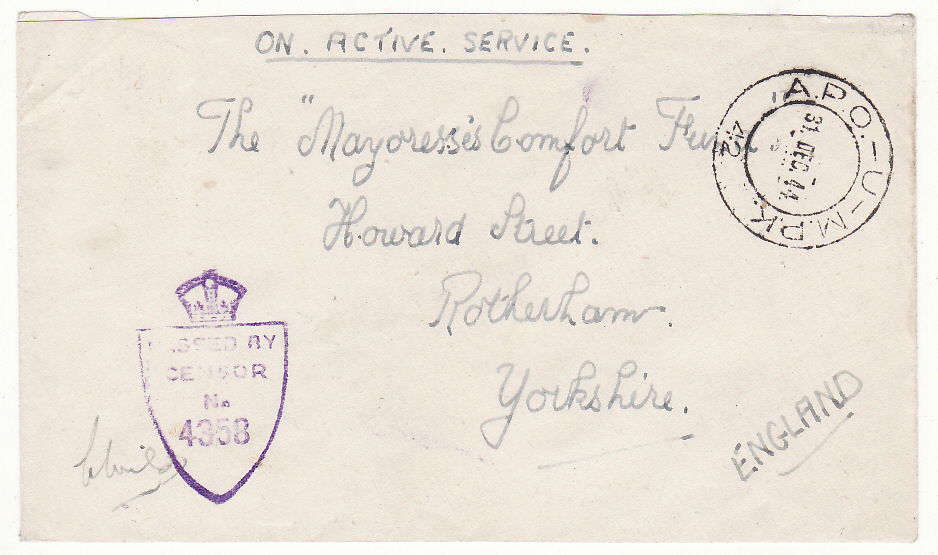 ON. ACTIVE. SERVICE.
The "Mayoress's Comfort Fund
Howard Street.
Rotherham.
Yorkshire.
ENGLAND
A.P.O.–U–M.P.K. 42
17
31. DEC. 44
PASSED BY
CENSOR
No
4358